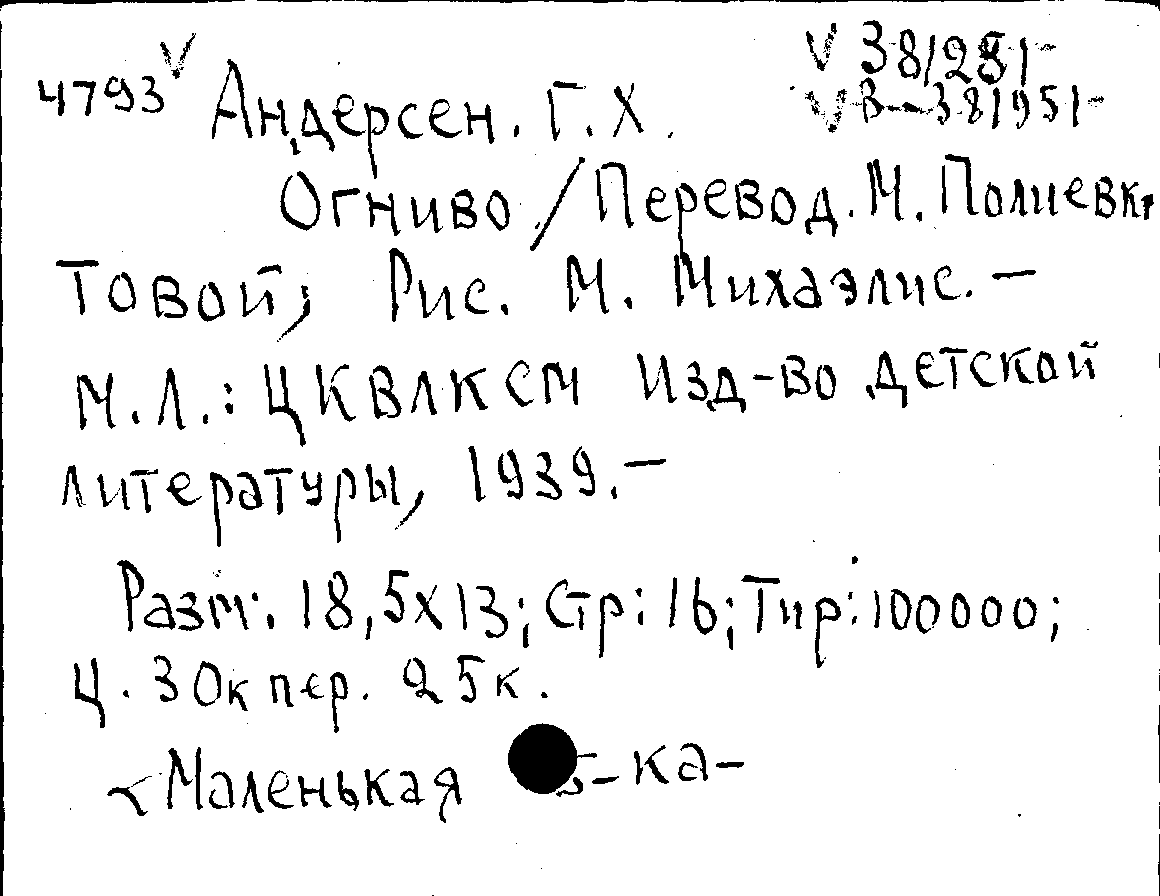 V 38/281-
4793 V Андерсен. Г. Х. V В-381951-
Огниво / Перевод. М. Полиевк
товой; Рис. М. Михаэлис. —
М. Л.: ЦКВЛКСМ Изд-во детской
литературы, 1939. —
Разм. 18,5х13; Стр: 16; Тир: 100000;
Ц. 30к пер. 25к.
Маленькая б-ка-